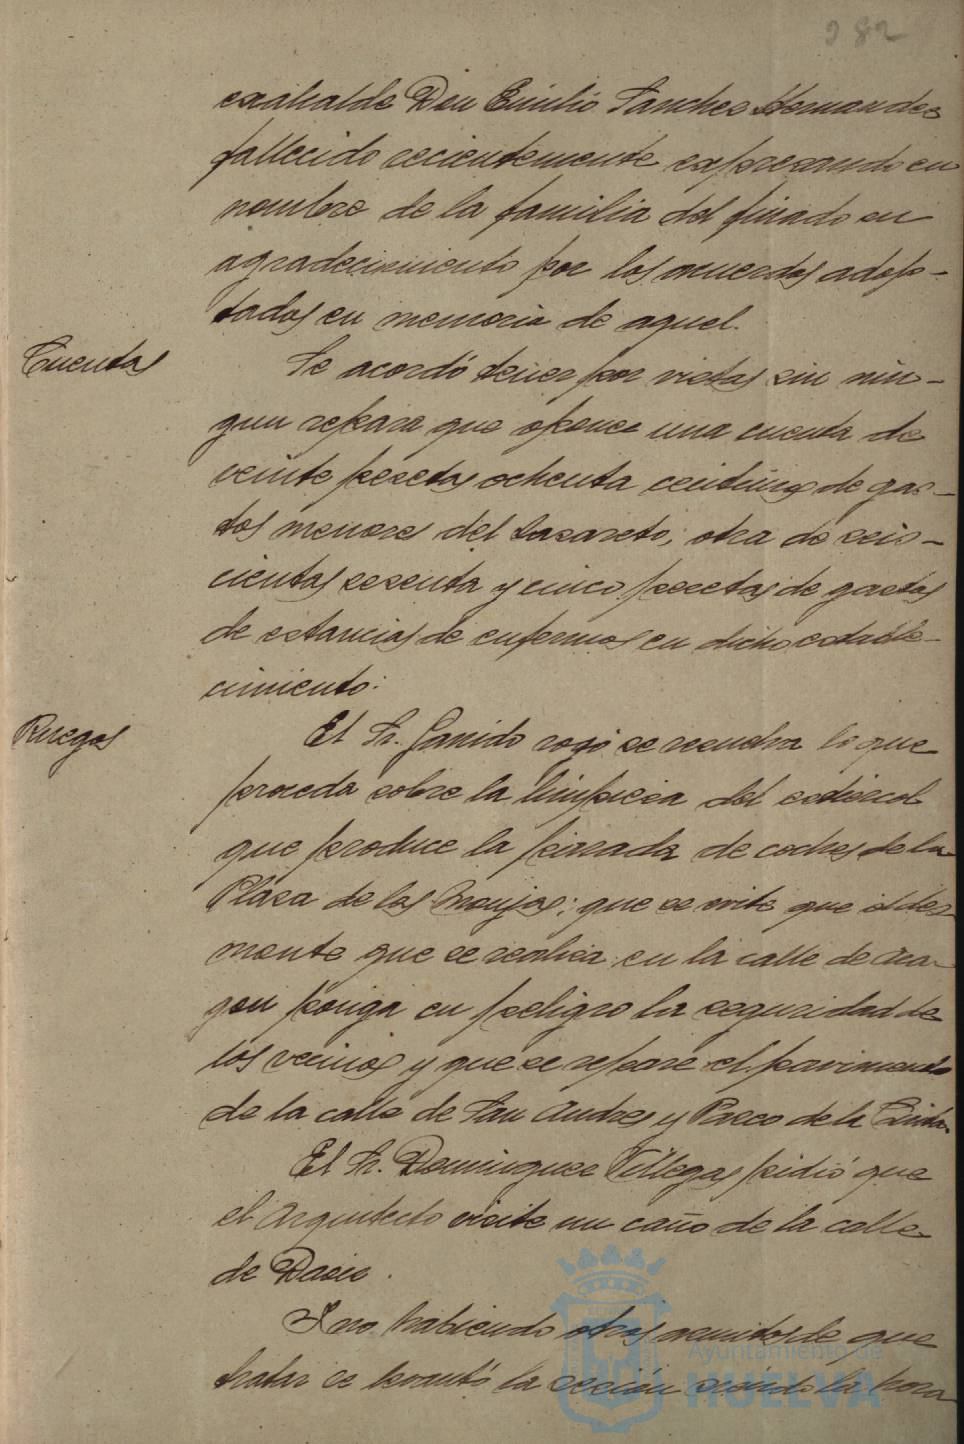 282
exalcalde Don Emilio Sanchez Hernandez
fallecido recientemente expresando en
nombre de la familia del finado su
agradecimiento por los acuerdos adop-
tados en memoria de aquel.
Cuentas
Se acordó tener por vistas sin nin-
gun reparo que oponer una cuenta de
veinte pesetas ochenta centimos de gas-
tos menores del Lazareto; otra de seis-
cientas sesenta y cinco pesetas de gastos
de estancias de enfermos en dicho estable-
cimiento.
Ruegos
El Sr. Garrido rogó se resuelva lo que
proceda sobre la limpieza del estiercol
que produce la parada de coches de la
Plaza de las Monjas; que se evite que el des-
monte que se realiza en la calle de Ara-
gon ponga en peligro la seguridad de
los vecinos y que se repare el pavimento
de la calle de San Andres y Paseo de la Cinta.
El Sr. Dominguez Villegas pidió que
el Arquitecto visite un caño de la calle
de
Y no habiendo otros asuntos de que
tratar se levantó la sesion siendo la hora
Ayuntamiento de
HUELVA